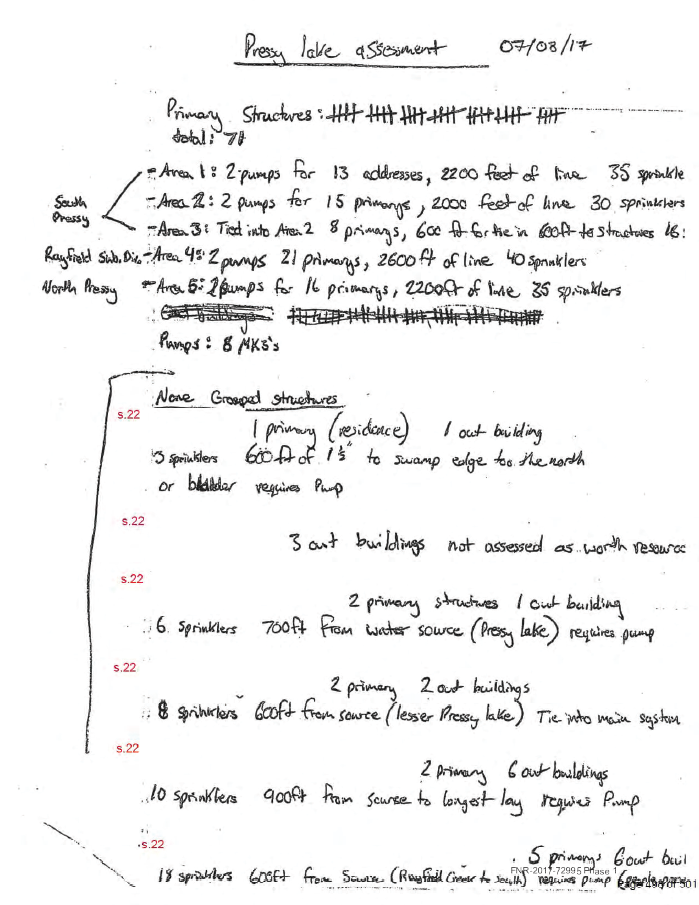 Pressy lake assessment 07/08/17
Primary Structures:
total: 71
- Area 1: 2 pumps for 13 addresses, 2200 feet of line 35 sprinkle
South Pressy
- Area 2: 2 pumps for 15 primarys, 2000 feet of line 30 sprinklers
- Area 3: Tied into Area 2 8 primarys, 600 ft for tie in 600ft to structures 16:
Rayfield Sub. Div. - Area 4: 2 pumps 21 primarys, 2600 ft of line 40 sprinklers
North Pressy - Area 5: 2 pumps for 16 primarys, 2200ft of line 35 sprinklers
Pumps: 8 MK3's
None Grouped structures
s.22
1 primary (residence) 1 out building
3 sprinklers 600 ft of 1 ½" to swamp edge too the north
or bladder requires Pump
s.22
3 out buildings not assessed as worth resource
s.22
2 primary structures 1 out building
6 sprinklers 700ft from water source (Pressy lake) requires pump
s.22
2 primary 2 out buildings
8 sprinklers 600ft from source (lesser Pressy lake) Tie into main system
s.22
2 primary 6 out buildings
10 sprinklers 900ft from scurse to longest lay requires Pump
s.22
5 primarys 6 out buil
18 sprinklers 600ft from Source (Rayfield Creek to south) requires pump
FNR-2017-72995 Phase 1
Page 498 of 501